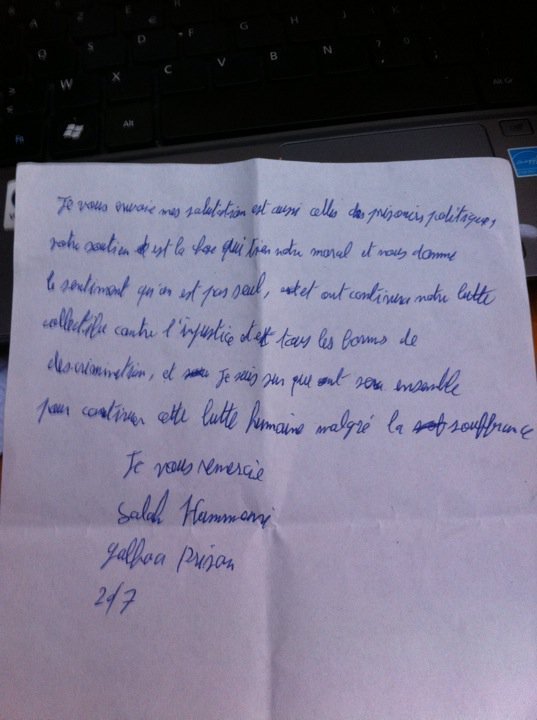 Q S D
W X C V B N
Fn Alt Alt Gr
Je vous envoie mes salutation est aussi celles des prisoniers politiques,
votre soutien est la base qui tien notre moral et nous donne
le sentiment qu'on est pas seul, et ont continura notre lutte
collective contre l'injustice et tous les forms de
descrimination, et je suis sur que ont sera ensemble
pour continuer cette lutte humaine malgré la souffrance
Je vous remercie
Salah Hammouri
galboa prison